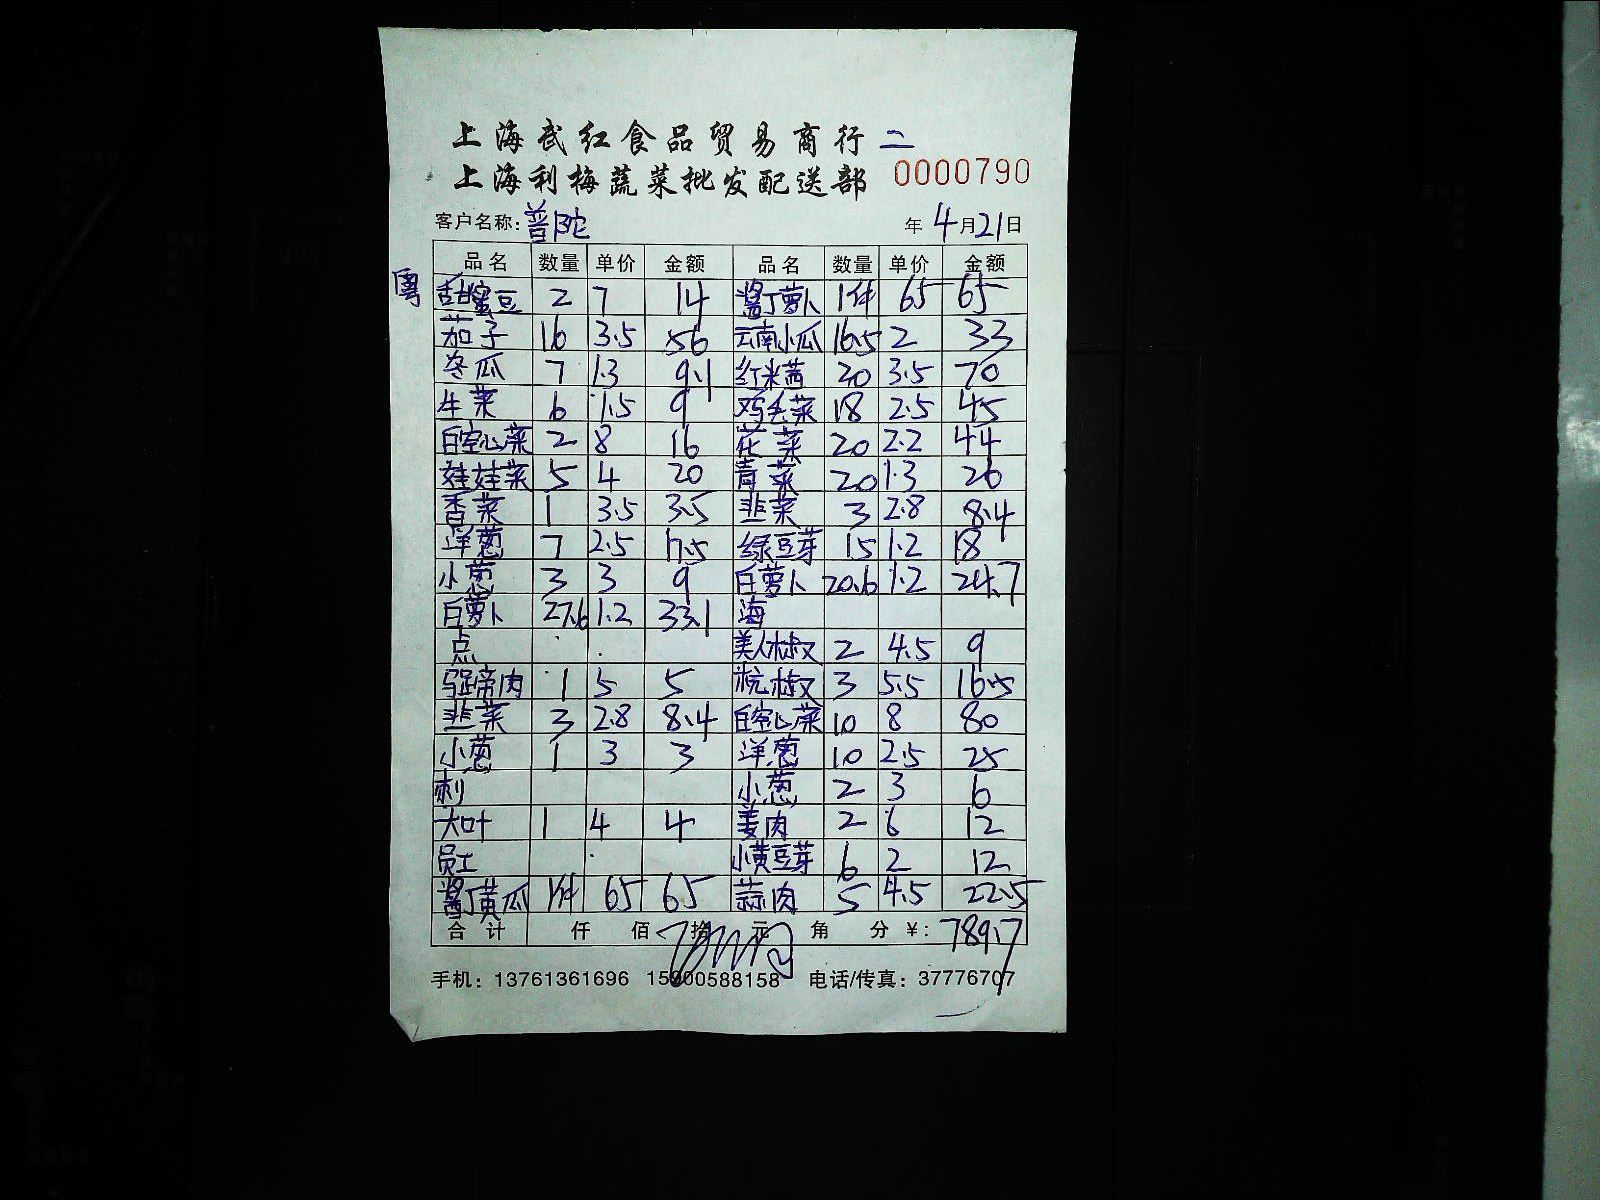 上海武红食品贸易商行 二
上海利梅蔬菜批发配送部 0000790
客户名称：普陀 年4月21日
品名 数量 单价 金额 品名 数量 单价 金额
粤 甜蜜豆 2 7 14 酱丁萝卜 1件 65 65
茄子 16 3.5 56 云南小瓜 16.5 2 33
冬瓜 7 1.3 9.1 红米茜 20 3.5 70
生菜 6 1.5 9 鸡毛菜 18 2.5 45
白空心菜 2 8 16 花菜 20 2.2 44
娃娃菜 5 4 20 青菜 20 1.3 26
香菜 1 3.5 3.5 韭菜 3 2.8 8.4
洋葱 7 2.5 17.5 绿豆芽 15 1.2 18
小葱 3 3 9 白萝卜 20.6 1.2 24.7
白萝卜 27.6 1.2 33.1 海
点 美人椒 2 4.5 9
马蹄肉 1 5 5 杭椒 3 5.5 16.5
韭菜 3 2.8 8.4 白空心菜 10 8 80
小葱 1 3 3 洋葱 10 2.5 25
刺 小葱 2 3 6
大叶 1 4 4 姜肉 2 6 12
员工 小黄豆芽 6 2 12
酱丁黄瓜 1件 65 65 蒜肉 5 4.5 22.5
合计 仟 佰 拾 元 角 分 ¥：789.7
手机：13761361696 15900588158 电话/传真：37776707